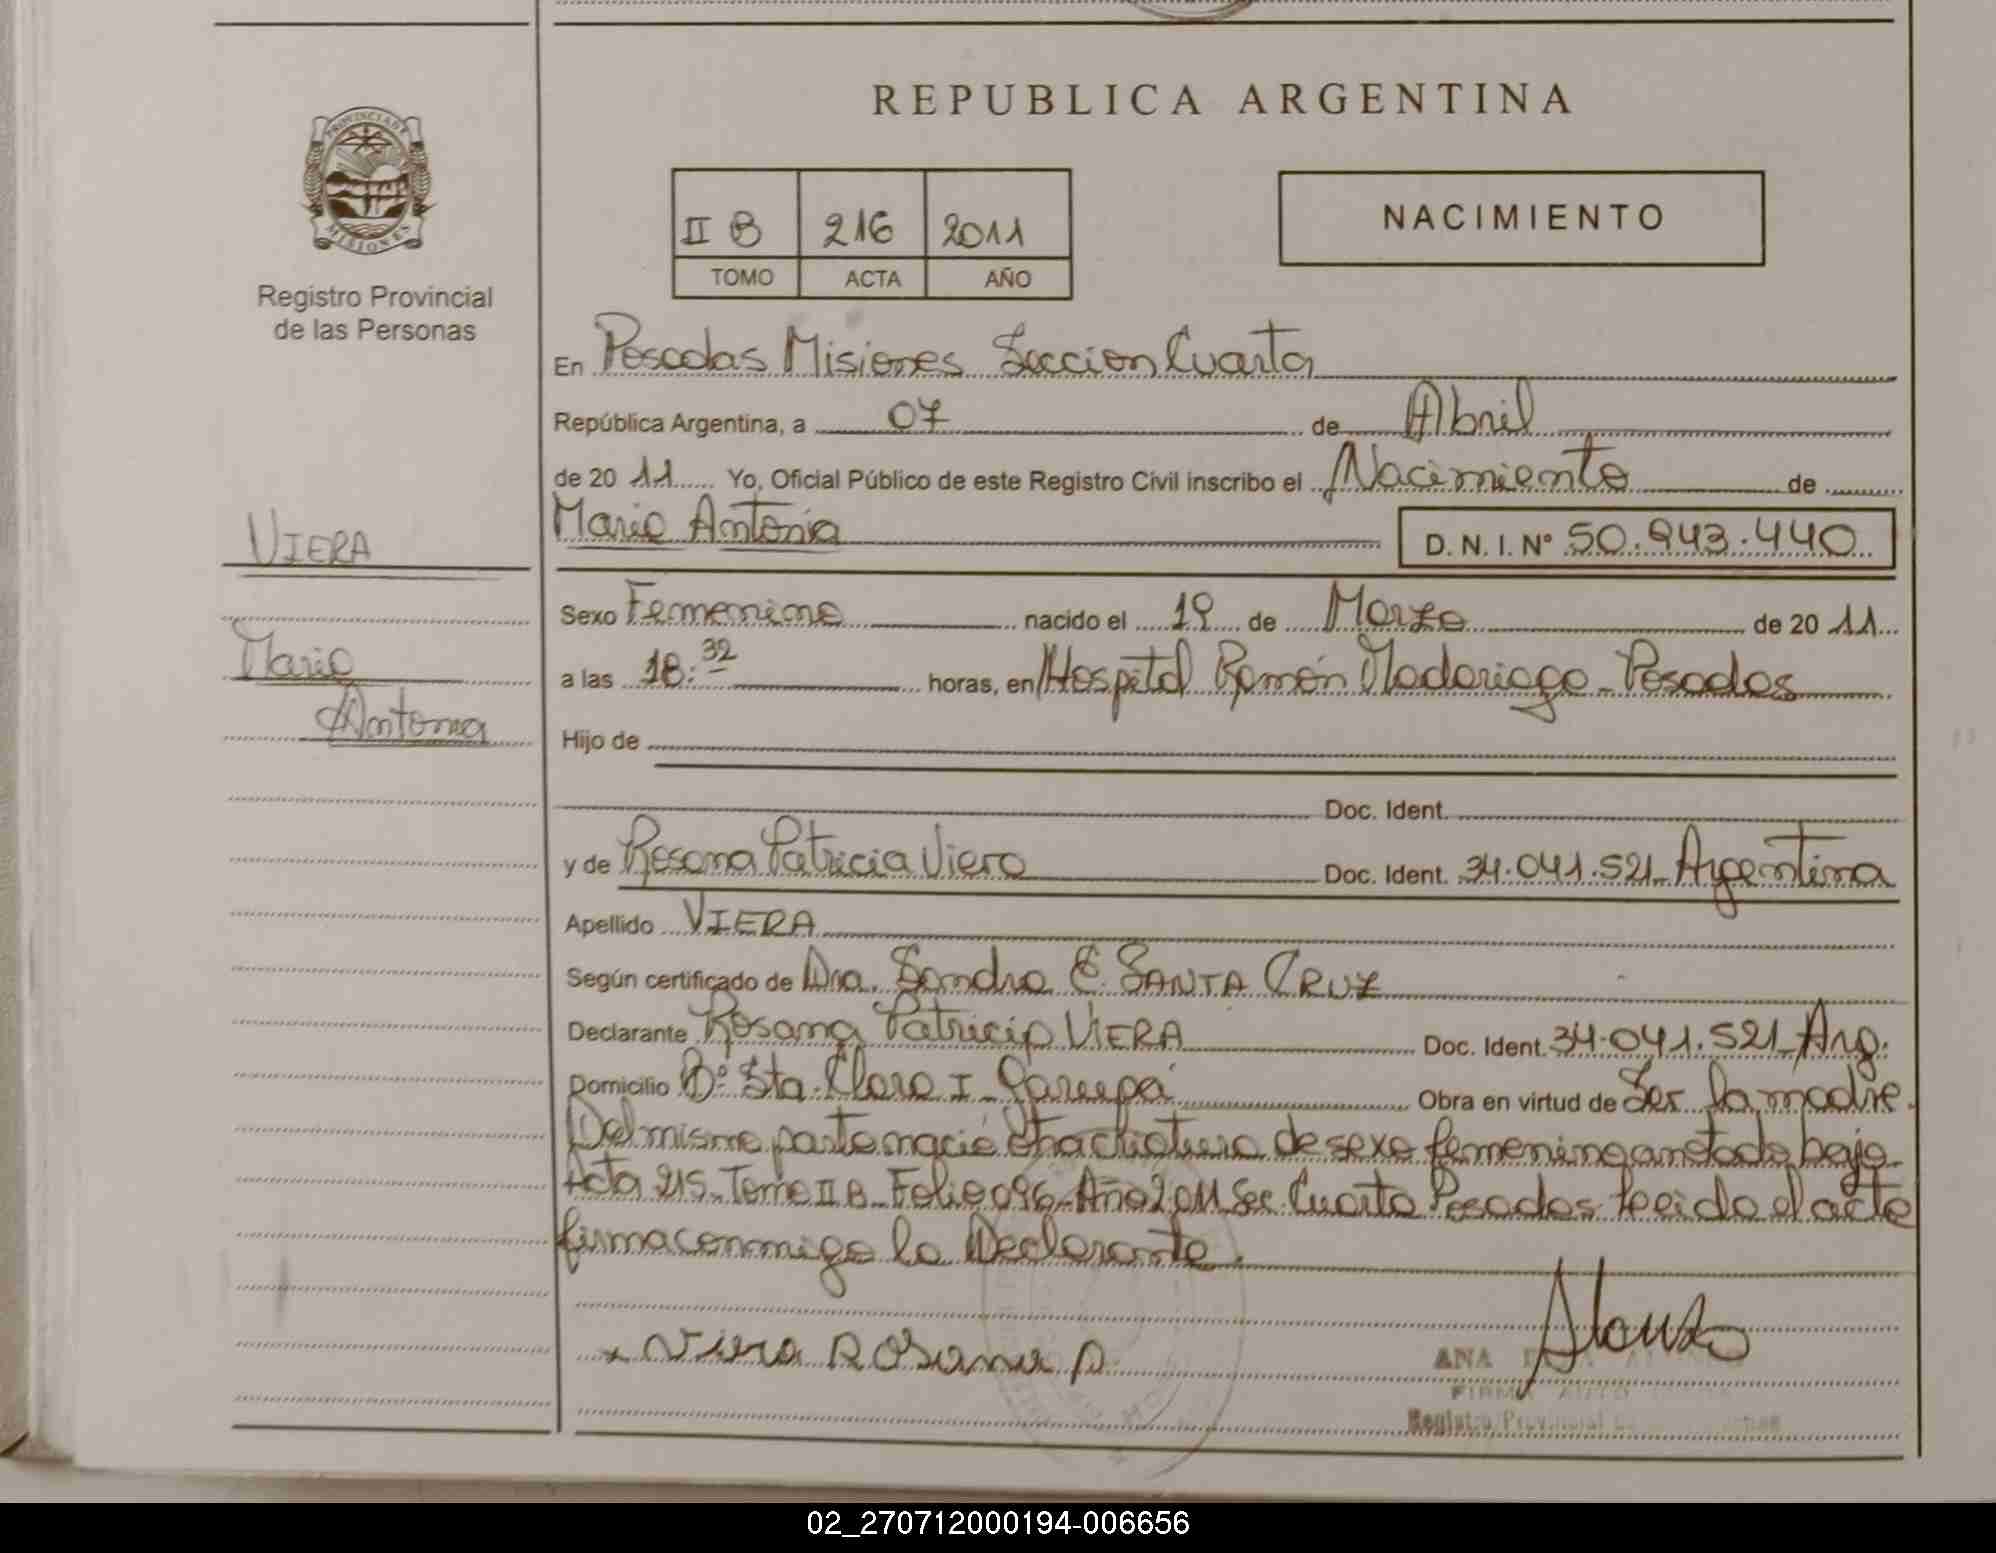 REPUBLICA ARGENTINA
PROVINCIA DE
MISIONES
Registro Provincial
de las Personas
II B 216 2011
TOMO ACTA AÑO
NACIMIENTO
En Posadas Misiones Seccion Cuarta
República Argentina, a 07 de Abril
de 20 11 Yo, Oficial Público de este Registro Civil inscribo el Nacimiento de
Maria Antonia D. N. I. Nº 50.943.440
VIERA
Maria
Antonia
Sexo Femenino nacido el 19 de Marzo de 20 11
a las 18:32 horas, en Hospital Ramón Madariaga - Posadas
Hijo de
Doc. Ident.
y de Rosana Patricia Viera Doc. Ident. 34.041.521 - Argentina
Apellido VIERA
Según certificado de Dra. Sandra E. SANTA CRUZ
Declarante Rosana Patricia VIERA Doc. Ident. 34.041.521 - Arg.
Domicilio Bº Sta. Clara I - Garupá Obra en virtud de Ser la madre.
Del mismo parto nació otra criatura de sexo femenino anotada bajo
Acta 215 - Tomo II B - Folio 096 - Año 2011 Sec. Cuarta Posadas leido el acta
firma conmigo la Declarante.
x Viera Rosana P.
ANA
FIRMA AUTO
Registro Provincial de
02_270712000194-006656